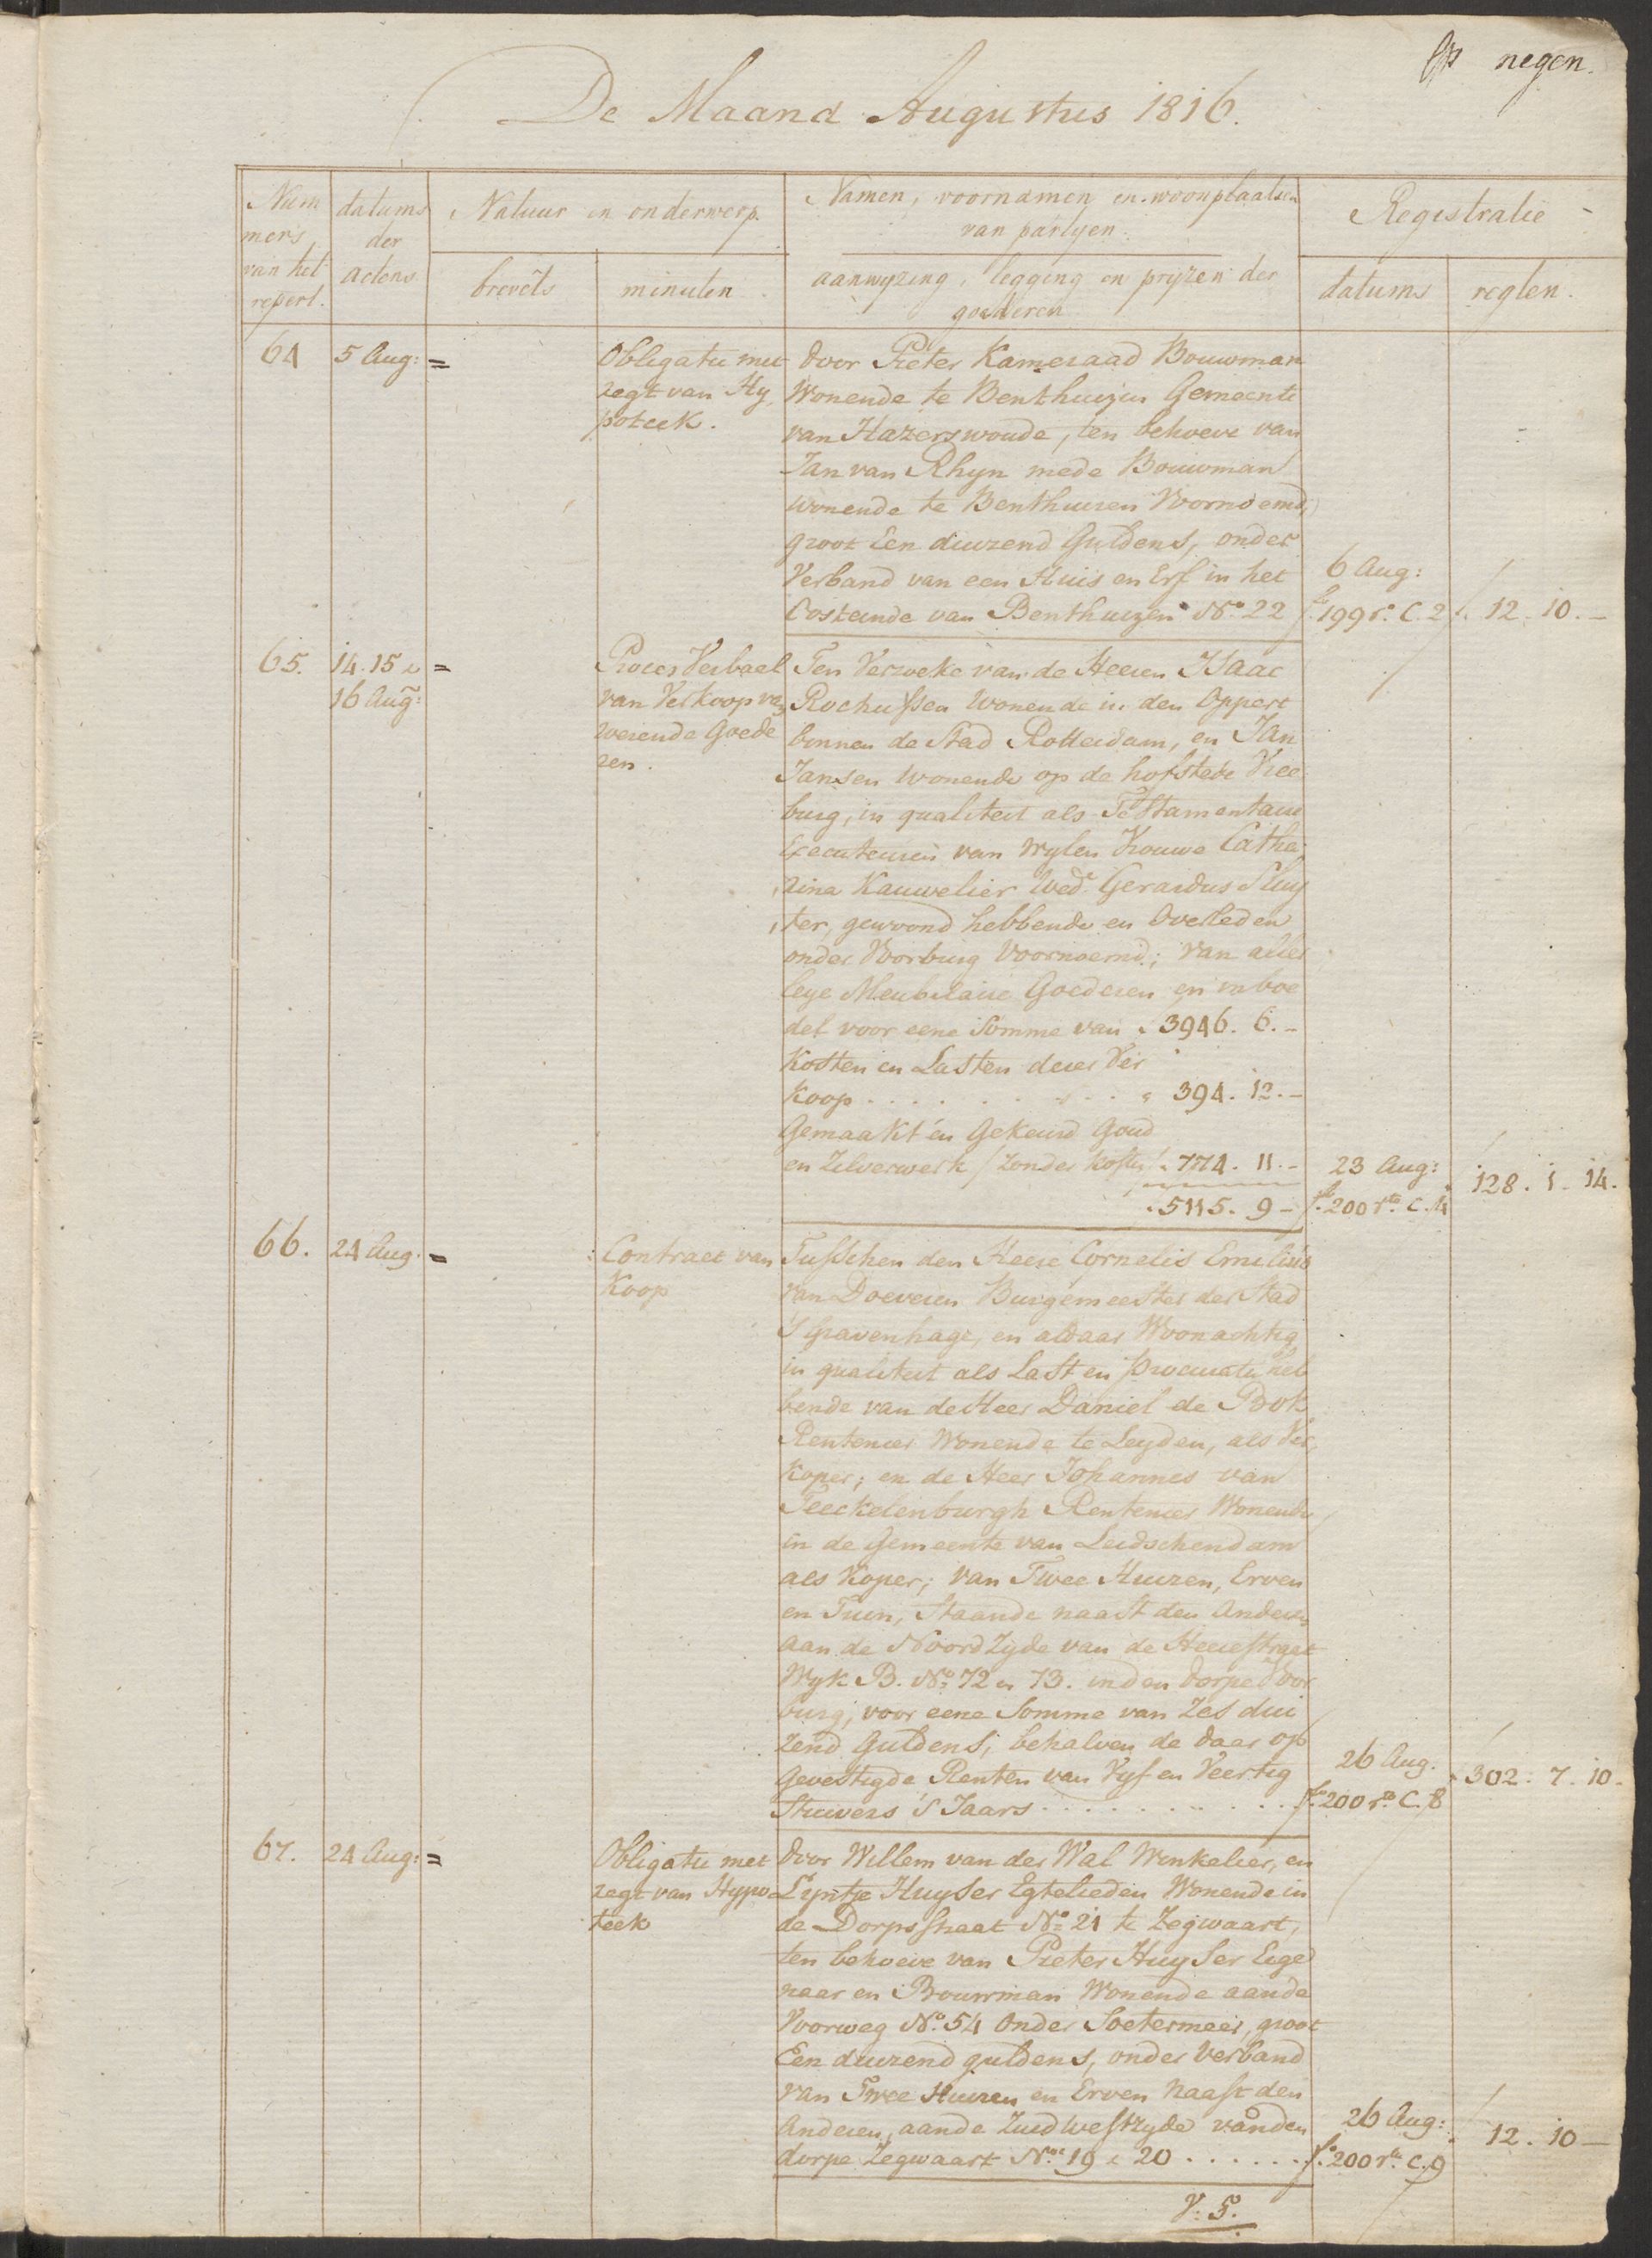 negen.
De Maand Augustus 1816.
Num
mers
van het
repert.
datums
der
actens.
Natuur en onderwerp.
brevets
minuten.
Namen, voornamen en woonplaatsen
van partyen.
aanwyzing, legging en pryzen der
goederen
Registratie
datums
regten.
64
5 Aug: =
Obligatie met
regt van Hy,
poteek.
Door Pieter Kameraad Bouwman
Wonende te Benthuizen Gemeente
van Hazerswoude, ten behoeve van
Jan van Rhyn mede Bouwman
wonende te Benthuizen Voornoemd,
groot Een duizend Guldens, onder
Verband van een Huis en Erf in het
Oosteinde van Benthuizen No. 22
6 Aug:
fo. 199 ro. C. 2
12. 10. -
65.
14. 15 &
16 Aug: =
Proces Verbaal
van Verkoop van
roerende Goede
ren.
Ten Verzoeke van de Heeren Isaac
Rochussen Wonende in den Oppert
binnen de Stad Rotterdam, en Jan
Jansen Wonende op de hofstede Vree
burg, in qualiteit als Testamentaire
Executeuren van wylen Vrouwe Catha
rina Kauwelier Wede. Gerardus Sluy
ter, gewoond hebbende en Overleden
onder Voorburg Voornoemd; van aller
leye Meubilaire Goederen en inboe
del voor eene Somme van 3946. 6. -
Kosten en Lasten dezer Ver
koop . . . . . . . . 394. 12. -
Gemaakt en Gekeurd Goud
en Zilverwerk / zonder Kosten / 774. 11. -
5115. 9 -
23 Aug:
fo. 200 ro. C. 4
128. 1. 14.
66.
24 Aug. =
Contract van
Koop
Tusschen den Heere Cornelis Emelius
van Doeveren Burgemeester der Stad
'S Gravenhage, en aldaar Woonachtig
in qualiteit als Last en procuratie heb
bende van de Heer Daniel de Bok
Rentenier Wonende te Leyden, als Ver,
koper; en de Heer Johannes van
Teeckelenburgh Rentenier Wonende
in de Gemeente van Leidschendam
als Koper; van Twee Huizen, Erven
en Tuin, Staande naast den Anderen
aan de Noord Zyde van de Heerestraat
Wyk B. No. 72 en 73. in den dorpe Voor
burg, voor eene Somme van Zes dui
zend Guldens; behalven de daar op
Gevestigde Renten van Vyf en Veertig
Stuivers 'S Jaars . . . . . . . .
26 Aug.
fo. 200 ro. C. 8
302. 7. 10.
67.
24 Aug: =
Obligatie met
regt van Hypo
teek
Door Willem van der Wal Winkelier, en
Lyntje Huyser Egtelieden Wonende in
de Dorpsstraat No. 21 te Zegwaart,
ten behoeve van Pieter Huyser Eige
naar en Bouwman Wonende aan de
Voorweg No. 54 Onder Soetermeer, groot
Een duizend guldens, onder Verband
van Twee Huizen en Erven Naast den
Anderen, aan de Zuid Westzyde van den
dorpe Zegwaart Nos. 19 & 20 . . . . . .
26 Aug:
fo. 200 ro. C. 9
12. 10 -
V. T.